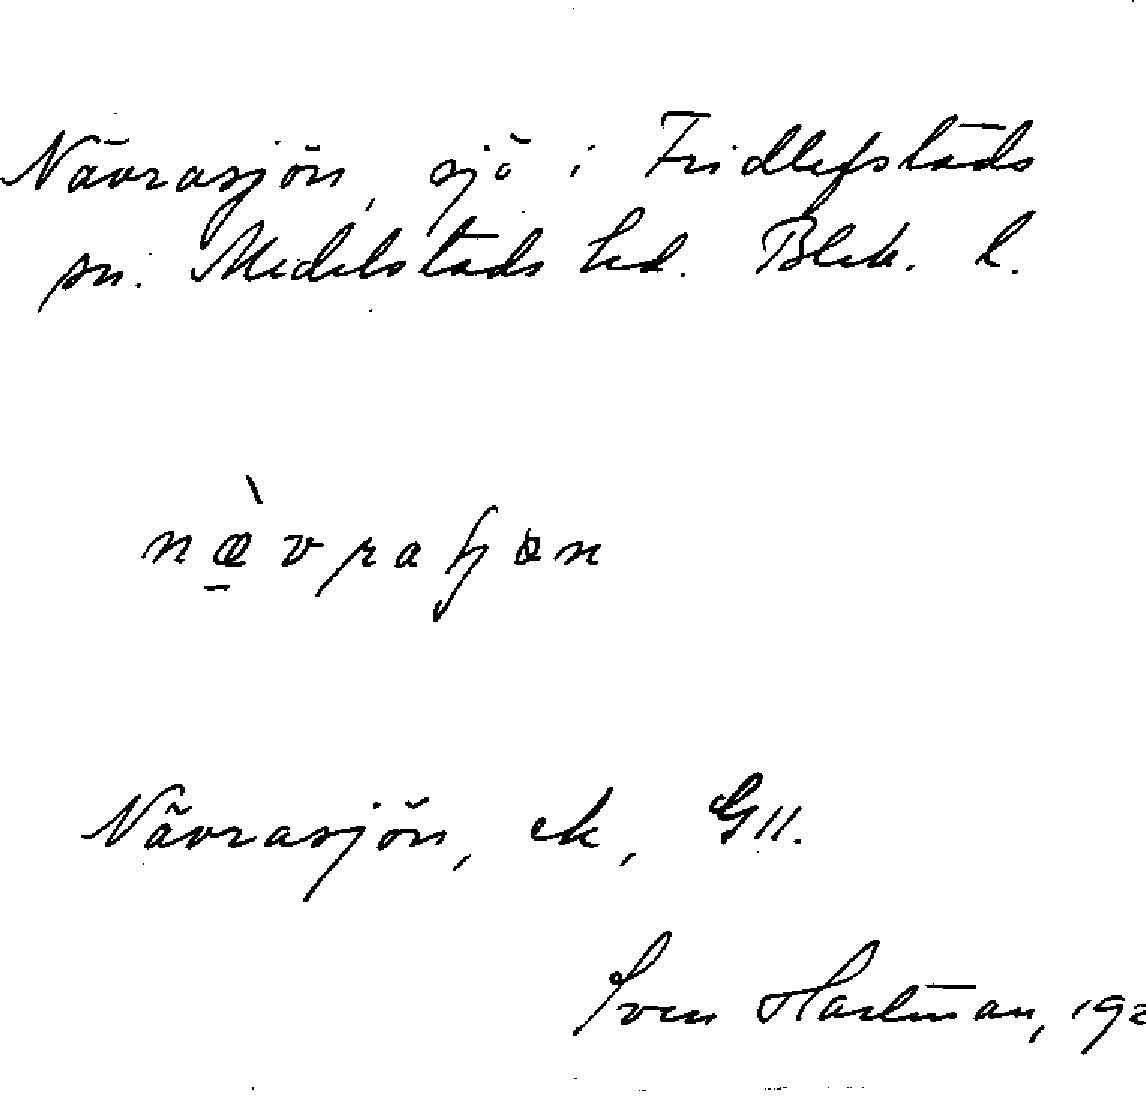 Nävrasjön, sjö i Fridlefstads
sn. Medelstads hd. Blek. l.
næ̀vraʃɷn
Nävrasjön, ek, G11.
Sven Hartman, 192